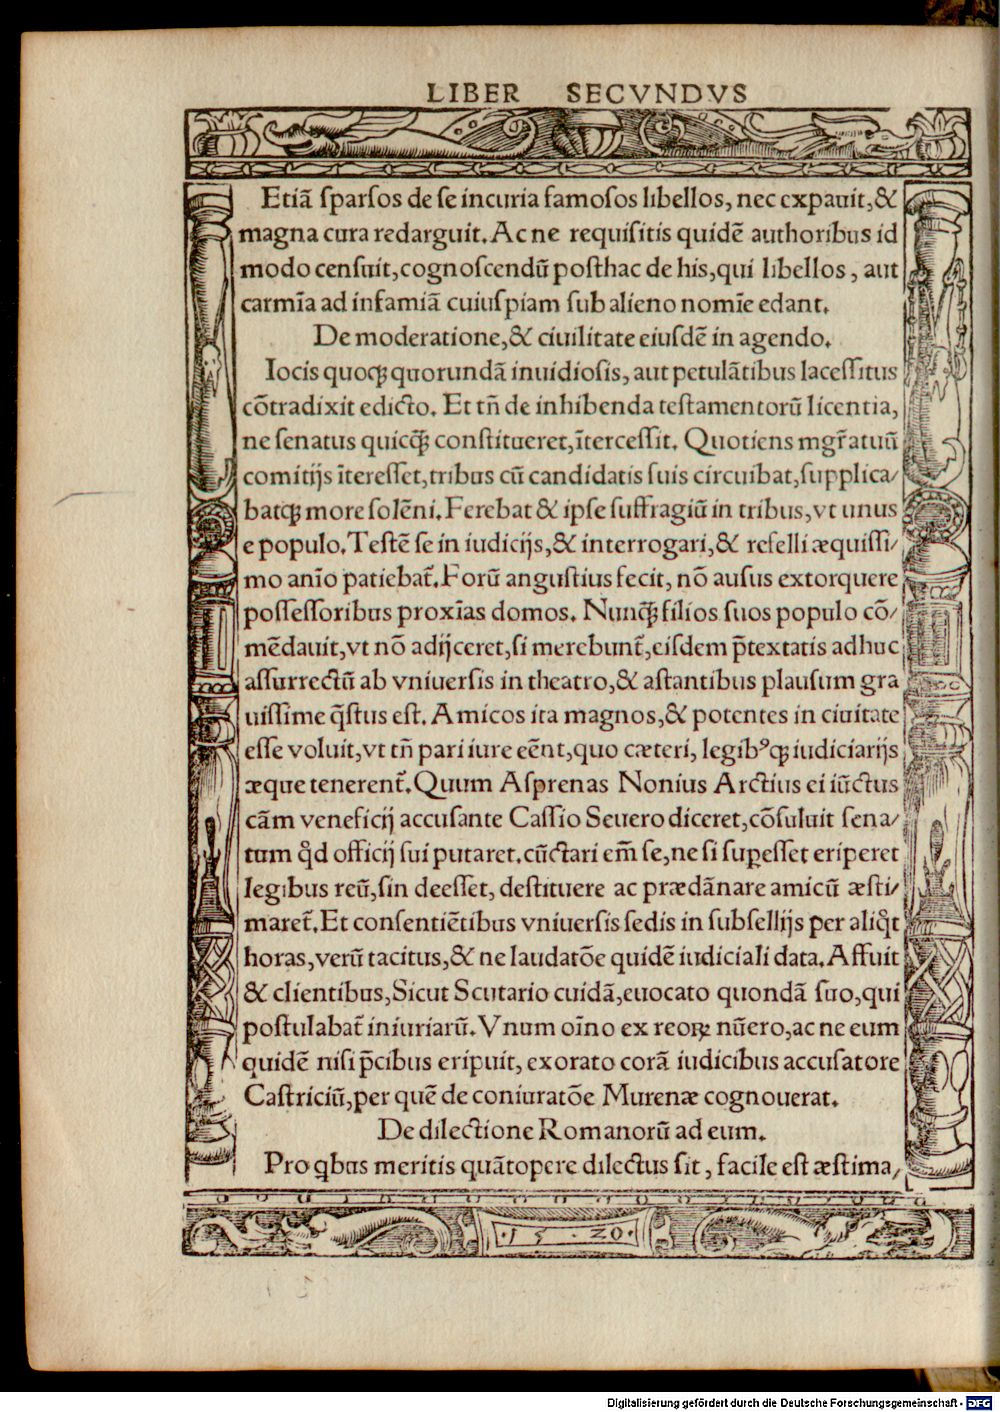 LIBER SECVNDVS
Etiã sparsos de se incuria famosos libellos, nec expauit, &
magna cura redarguit. Ac ne requisitis quidẽ authoribus id
modo censuit, cognoscendũ posthac de his, qui libellos, aut
carmĩa ad infamiã cuiuspiam sub alieno nomĩe edant.
De moderatione, & ciuilitate eiusdẽ in agendo.
Iocis quoqꝫ quorundã inuidiosis, aut petulãtibus lacessitus
cõtradixit edicto. Et tñ de inhibenda testamentorũ licentia,
ne senatus quicq̃ꝫ constitueret, ĩtercessit. Quotiens mgr̃atuũ
comitijs ĩteresset, tribus cũ candidatis suis circuibat, supplica/
batqꝫ more solẽni. Ferebat & ipse suffragiũ in tribus, vt unus
e populo. Testẽ se in iudicijs, & interrogari, & refelli æquissi/
mo anĩo patiebat̃. Forũ angustius fecit, nõ ausus extorquere
possessoribus proxĩas domos. Nunq̃ꝫ filios suos populo cõ/
mẽdauit, vt nõ adijceret, si merebunt̃, eisdem p̃textatis adhuc
assurrectũ ab vniuersis in theatro, & astantibus plausum gra
uissime q̃stus est. Amicos ita magnos, & potentes in ciuitate
esse voluit, vt tñ pari iure eẽnt, quo cæteri, legibꝰqꝫ iudiciarijs
æque tenerent̃. Quum Asprenas Nonius Arctius ei iũctus
cãm veneficij accusante Cassio Seuero diceret, cõsuluit sena/
tum qd̃ officij sui putaret. cũctari em̃ se, ne si suꝑesset eriperet
legibus reũ, sin deesset, destituere ac prædãnare amicũ æsti/
maret̃. Et consentiẽtibus vniuersis sedis in subsellijs per aliqt̃
horas, verũ tacitus, & ne laudatõe quidẽ iudiciali data. Affuit
& clientibus, Sicut Scutario cuidã, euocato quondã suo, qui
postulabat̃ iniuriarũ. Vnum oĩno ex reoꝝ nũero, ac ne eum
quidẽ nisi p̃cibus eripuit, exorato corã iudicibus accusatore
Castriciũ, per quẽ de coniuratõe Murenæ cognouerat.
De dilectione Romanorũ ad eum.
Pro q̃bus meritis quãtopere dilectus sit, facile est æstima/
1520
Digitalisierung gefördert durch die Deutsche Forschungsgemeinschaft - DFG